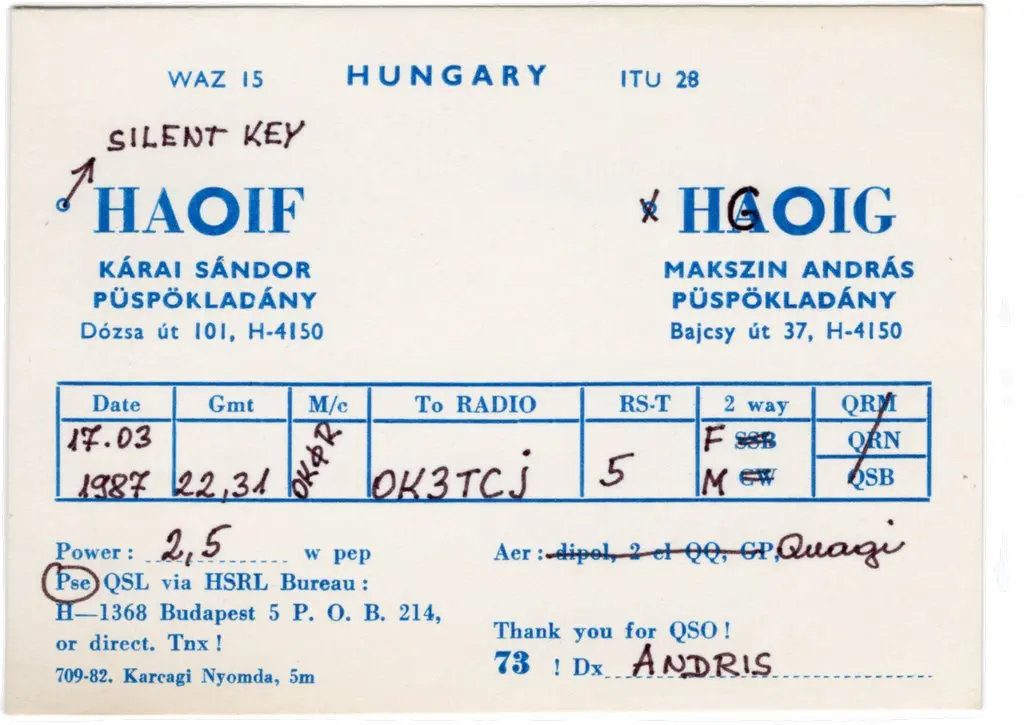 WAZ 15 HUNGARY ITU 28
SILENT KEY
HAOIF HGOIG
KÁRAI SÁNDOR MAKSZIN ANDRÁS
PÜSPÖKLADÁNY PÜSPÖKLADÁNY
Dózsa út 101, H-4150 Bajcsy út 37, H-4150
Date Gmt M/c To RADIO RS-T 2 way QRM
17.03 F SSB QRN
1987 22,31 OKØR OK3TCj 5 M CW QSB
Power: 2,5 w pep Aer: dipol, 2 el QQ, GP, Quagi
Pse QSL via HSRL Bureau:
H—1368 Budapest 5 P. O. B. 214,
or direct. Tnx! Thank you for QSO!
73 ! Dx ANDRIS
709-82. Karcagi Nyomda, 5m